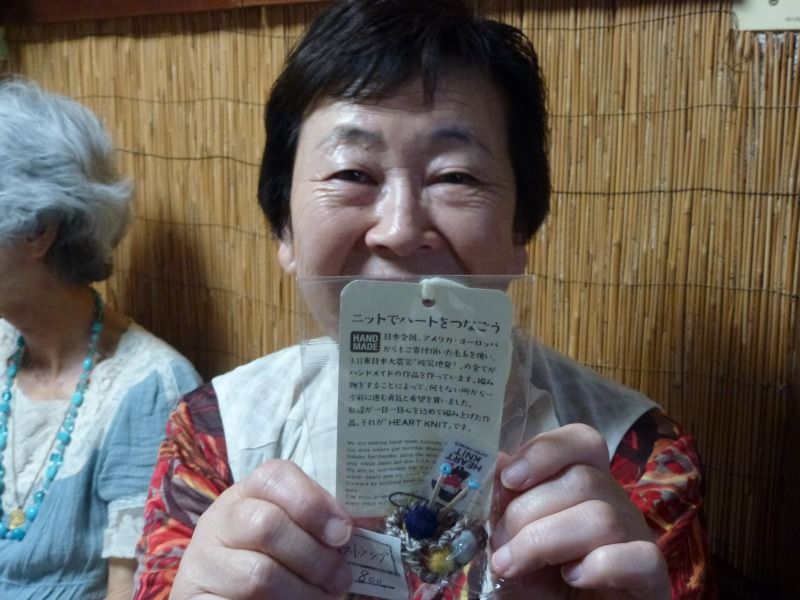 ニットでハートをつなごう
HAND MADE
日本全国、アメリカ・ヨーロッパ
からもご寄付頂いた毛糸を使い、
3.11東日本大震災"被災地発!"の全てが
ハンドメイドの作品を作っています。編み
物をすることによって、何もない所から一
歩前に進む勇気と希望を貰いました。
私達が一目一目心を込めて編み上げた作
品、それが「HEART KNIT」です。
We are making hand-made
the area where got terrible
HEART
KNIT
ストラップ
800